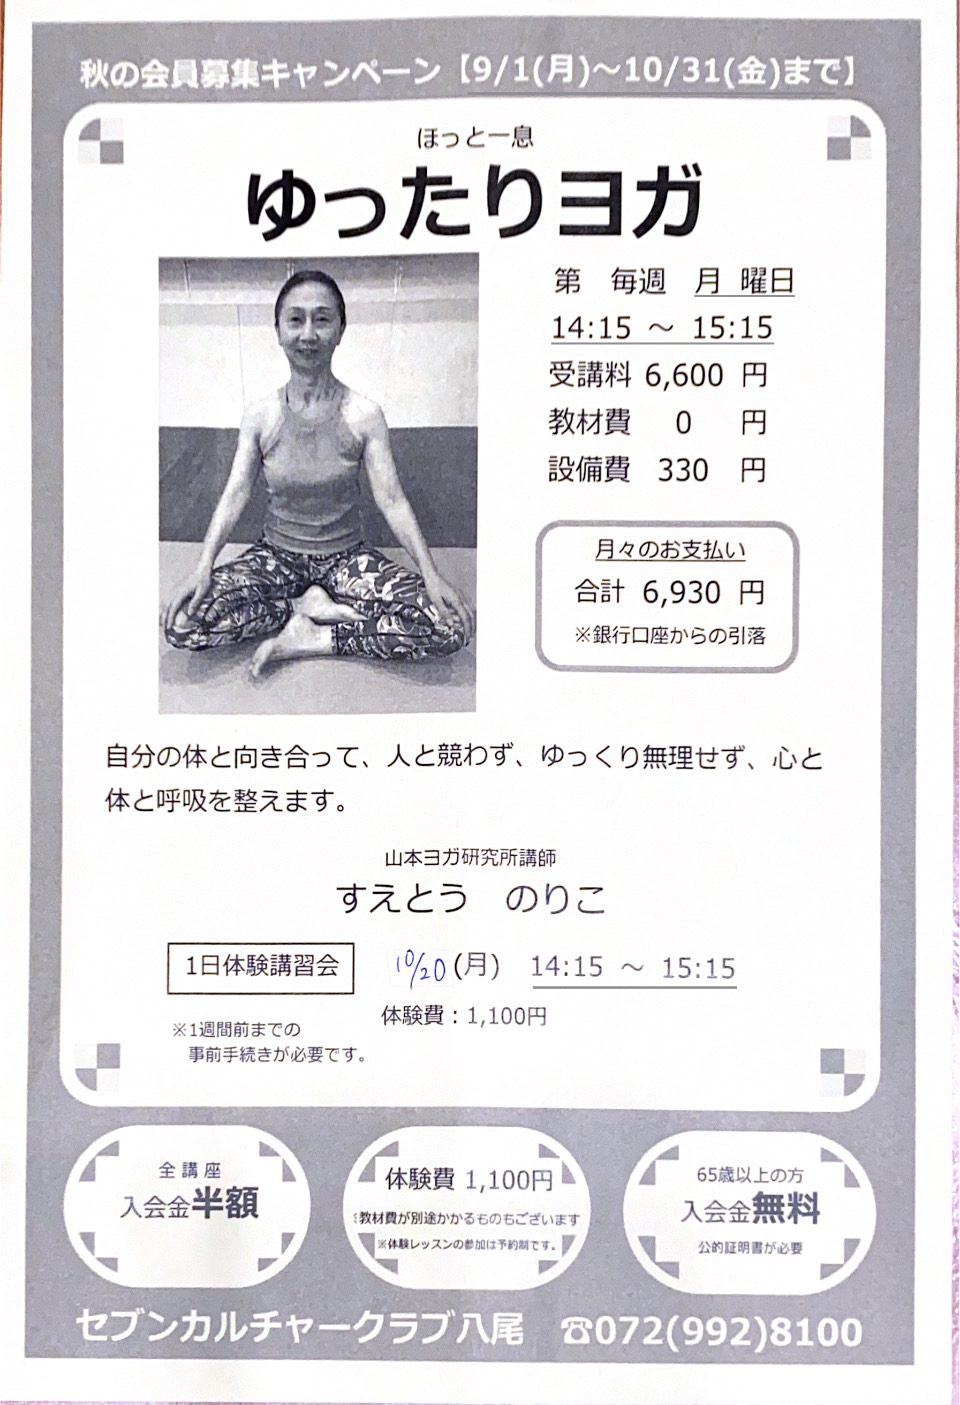 秋の会員募集キャンペーン【9/1(月)～10/31(金)まで】
ほっと一息
ゆったりヨガ
第　毎週　月 曜日
14:15 ～ 15:15
受講料 6,600 円
教材費 0 円
設備費 330 円
月々のお支払い
合計 6,930 円
※銀行口座からの引落
自分の体と向き合って、人と競わず、ゆっくり無理せず、心と
体と呼吸を整えます。
山本ヨガ研究所講師
すえとう　のりこ
1日体験講習会　10/20(月)　14:15 ～ 15:15
体験費：1,100円
※1週間前までの
事前手続きが必要です。
全講座
入会金半額
体験費 1,100円
教材費が別途かかるものもございます
※体験レッスンの参加は予約制です。
65歳以上の方
入会金無料
公的証明書が必要
セブンカルチャークラブ八尾　☎072(992)8100